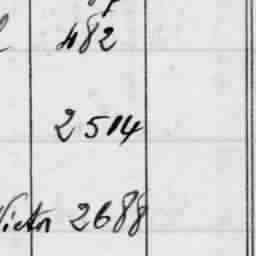 482
2514
Victor 2688